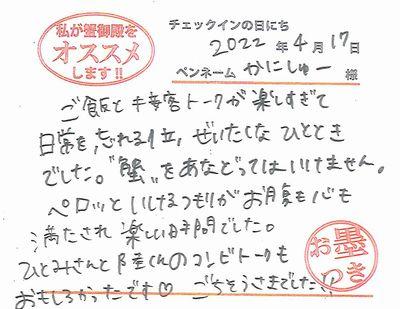 私が蟹御殿を
オススメ
します!!
チェックインの日にち
2022年4月17日
ペンネーム かにしゅー 様
ご飯と接客トークが楽しすぎて
日常を忘れる位、ぜいたくなひととき
でした。"蟹"をあなどってはいけません。
ペロッといけるつもりがお腹も心も
満たされ楽しい時間でした。
ひとみさんと陸くんのコンビトークも
おもしろかったです♡ ごちそうさまでした!!
お墨
つき